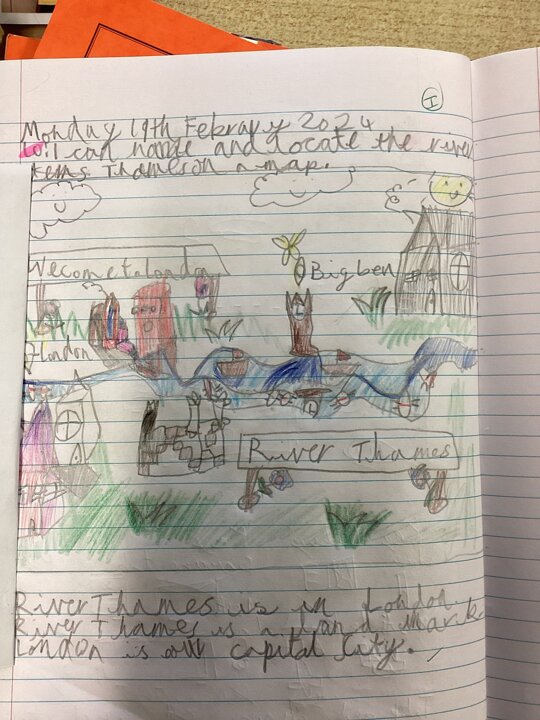 I
Monday 19th Febrary 2024
Lo: I can name and Locate the river
tems Thames on a map.
Wecome to London
Big ben
London
River Thames
River Thames is in London
River Thames is a land mark
London is our capital City.